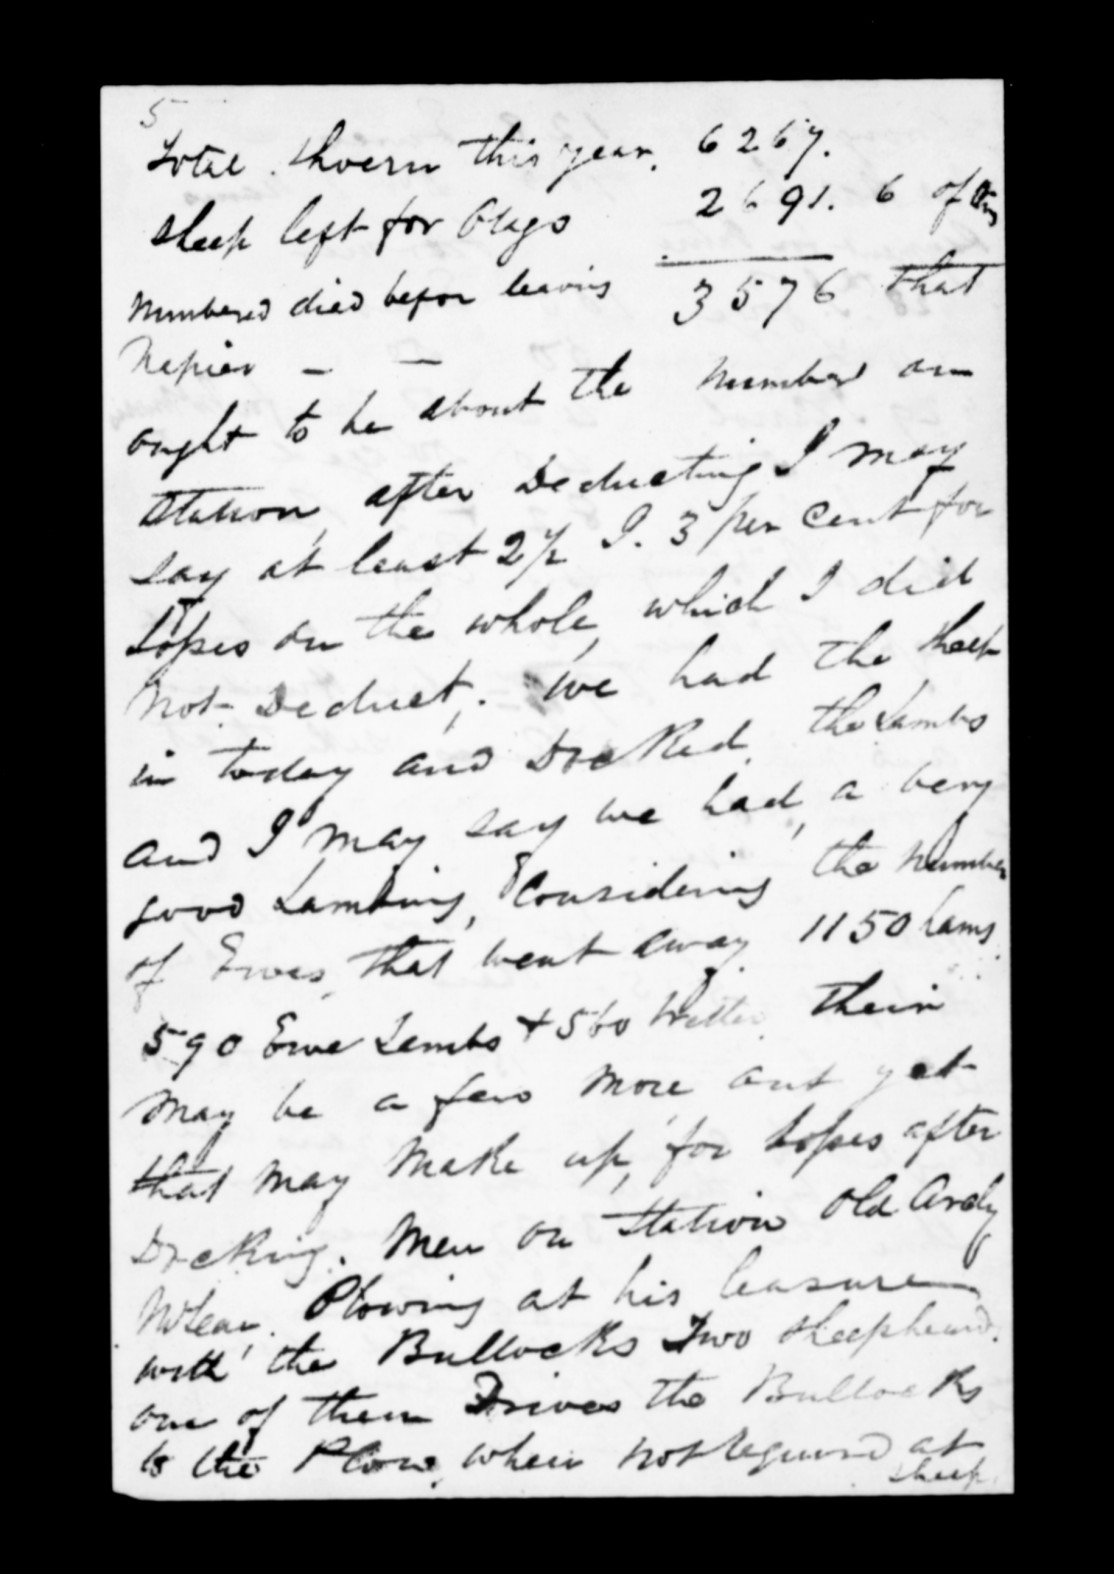 5
Total Shoern this year. 6267.
Sheep left for Otago 2691. 6 of this
Numbered died befor leaving 3576 that
Napier — —
ought to be about the number on
Station, after Deducting I may
say at least 2½ I. 3 per cent for
Losses on the whole, which I did
not Deduct,. We had the sheep
in today and Docked the Lambs
and I may say we had, a very
good Lambing, Considering the number
of Ewes, that went away 1150 Lams
590 Ewe Lambs + 560 Wether their
may be a few more out yet
that may make up, for Losses after
Docking. Men on Station Old Andy
McLean. Plowing at his leasure
with the Bullocks Two Sheepheards.
one of them Drives the Bullocks
to the Plow, when not requird at
sheep.